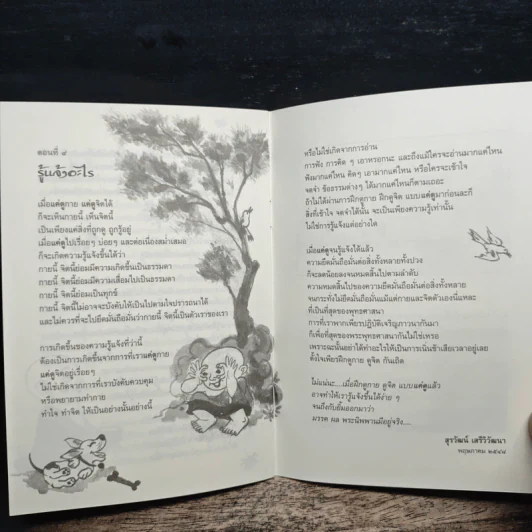 ตอนที่ ๙
รู้แจ้งอะไร
เมื่อแค่ดูกาย แค่ดูจิตได้
ก็จะเห็นกายนี้ เห็นจิตนี้
เป็นเพียงแค่สิ่งที่ถูกดู ถูกรู้อยู่
เมื่อแค่ดูไปเรื่อยๆ บ่อยๆ และต่อเนื่องสม่ำเสมอ
ก็จะเกิดความรู้แจ้งขึ้นได้ว่า
กายนี้ จิตนี้ย่อมมีความเกิดขึ้นเป็นธรรมดา
กายนี้ จิตนี้ย่อมมีความเสื่อมไปเป็นธรรมดา
กายนี้ จิตนี้ย่อมเป็นทุกข์
กายนี้ จิตนี้ไม่อาจจะบังคับให้เป็นไปตามใจปรารถนาได้
และไม่ควรที่จะไปยึดมั่นถือมั่นว่ากายนี้ จิตนี้เป็นตัวเราของเรา
การเกิดขึ้นของความรู้แจ้งที่ว่านี้
ต้องเป็นการเกิดขึ้นจากการที่เราแค่ดูกาย
แค่ดูจิตอยู่เรื่อยๆ
ไม่ใช่เกิดจากการที่เราบังคับควบคุม
หรือพยายามทำกาย
ทำใจ ทำจิต ให้เป็นอย่างนั้นอย่างนี้
หรือไม่ใช่เกิดจากการอ่าน
การฟัง การคิด ๆ เอาหรอกนะ และถึงแม้ใครจะอ่านมากแค่ไหน
ฟังมากแค่ไหน คิดๆ เอามากแค่ไหน หรือใครจะเข้าใจ
จดจำ ข้อธรรมต่างๆ ได้มากแค่ไหนก็ตามเถอะ
ถ้าไม่ได้ผ่านการฝึกดูกาย ฝึกดูจิต แบบแค่ดูมาก่อนละก็
สิ่งที่เข้าใจ จดจำได้นั้น จะเป็นเพียงความรู้เท่านั้น
ไม่ใช่การรู้แจ้งแต่อย่างใด
เมื่อแค่ดูจนรู้แจ้งได้แล้ว
ความยึดมั่นถือมั่นต่อสิ่งทั้งหลายทั้งปวง
ก็จะลดน้อยลงจนหมดสิ้นไปตามลำดับ
ความหมดสิ้นไปของความยึดมั่นถือมั่นต่อสิ่งทั้งหลาย
จนกระทั่งไม่ยึดมั่นถือมั่นแม้แต่กายและจิตตัวเองนี้แหละ
ที่เป็นที่สุดของพุทธศาสนา
การที่เราพากเพียรปฏิบัติเจริญภาวนากันมา
ก็เพื่อที่สุดของพระพุทธศาสนากันไม่ใช่เหรอ
เพราะฉะนั้นอย่าได้ทำอะไรให้เป็นการเนิ่นช้าเสียเวลาอยู่เลย
ตั้งใจเพียรฝึกดูกาย ดูจิต กันเถิด
ไม่แน่นะ...เมื่อฝึกดูกาย ดูจิต แบบแค่ดูแล้ว
อาจทำให้เรารู้แจ้งขึ้นได้ง่าย ๆ
จนถึงกับยิ้มออกมาว่า
มรรค ผล พระนิพพานมีอยู่จริง....
สุรวัฒน์ เสรีวิวัฒนา
พฤษภาคม ๒๕๔๘